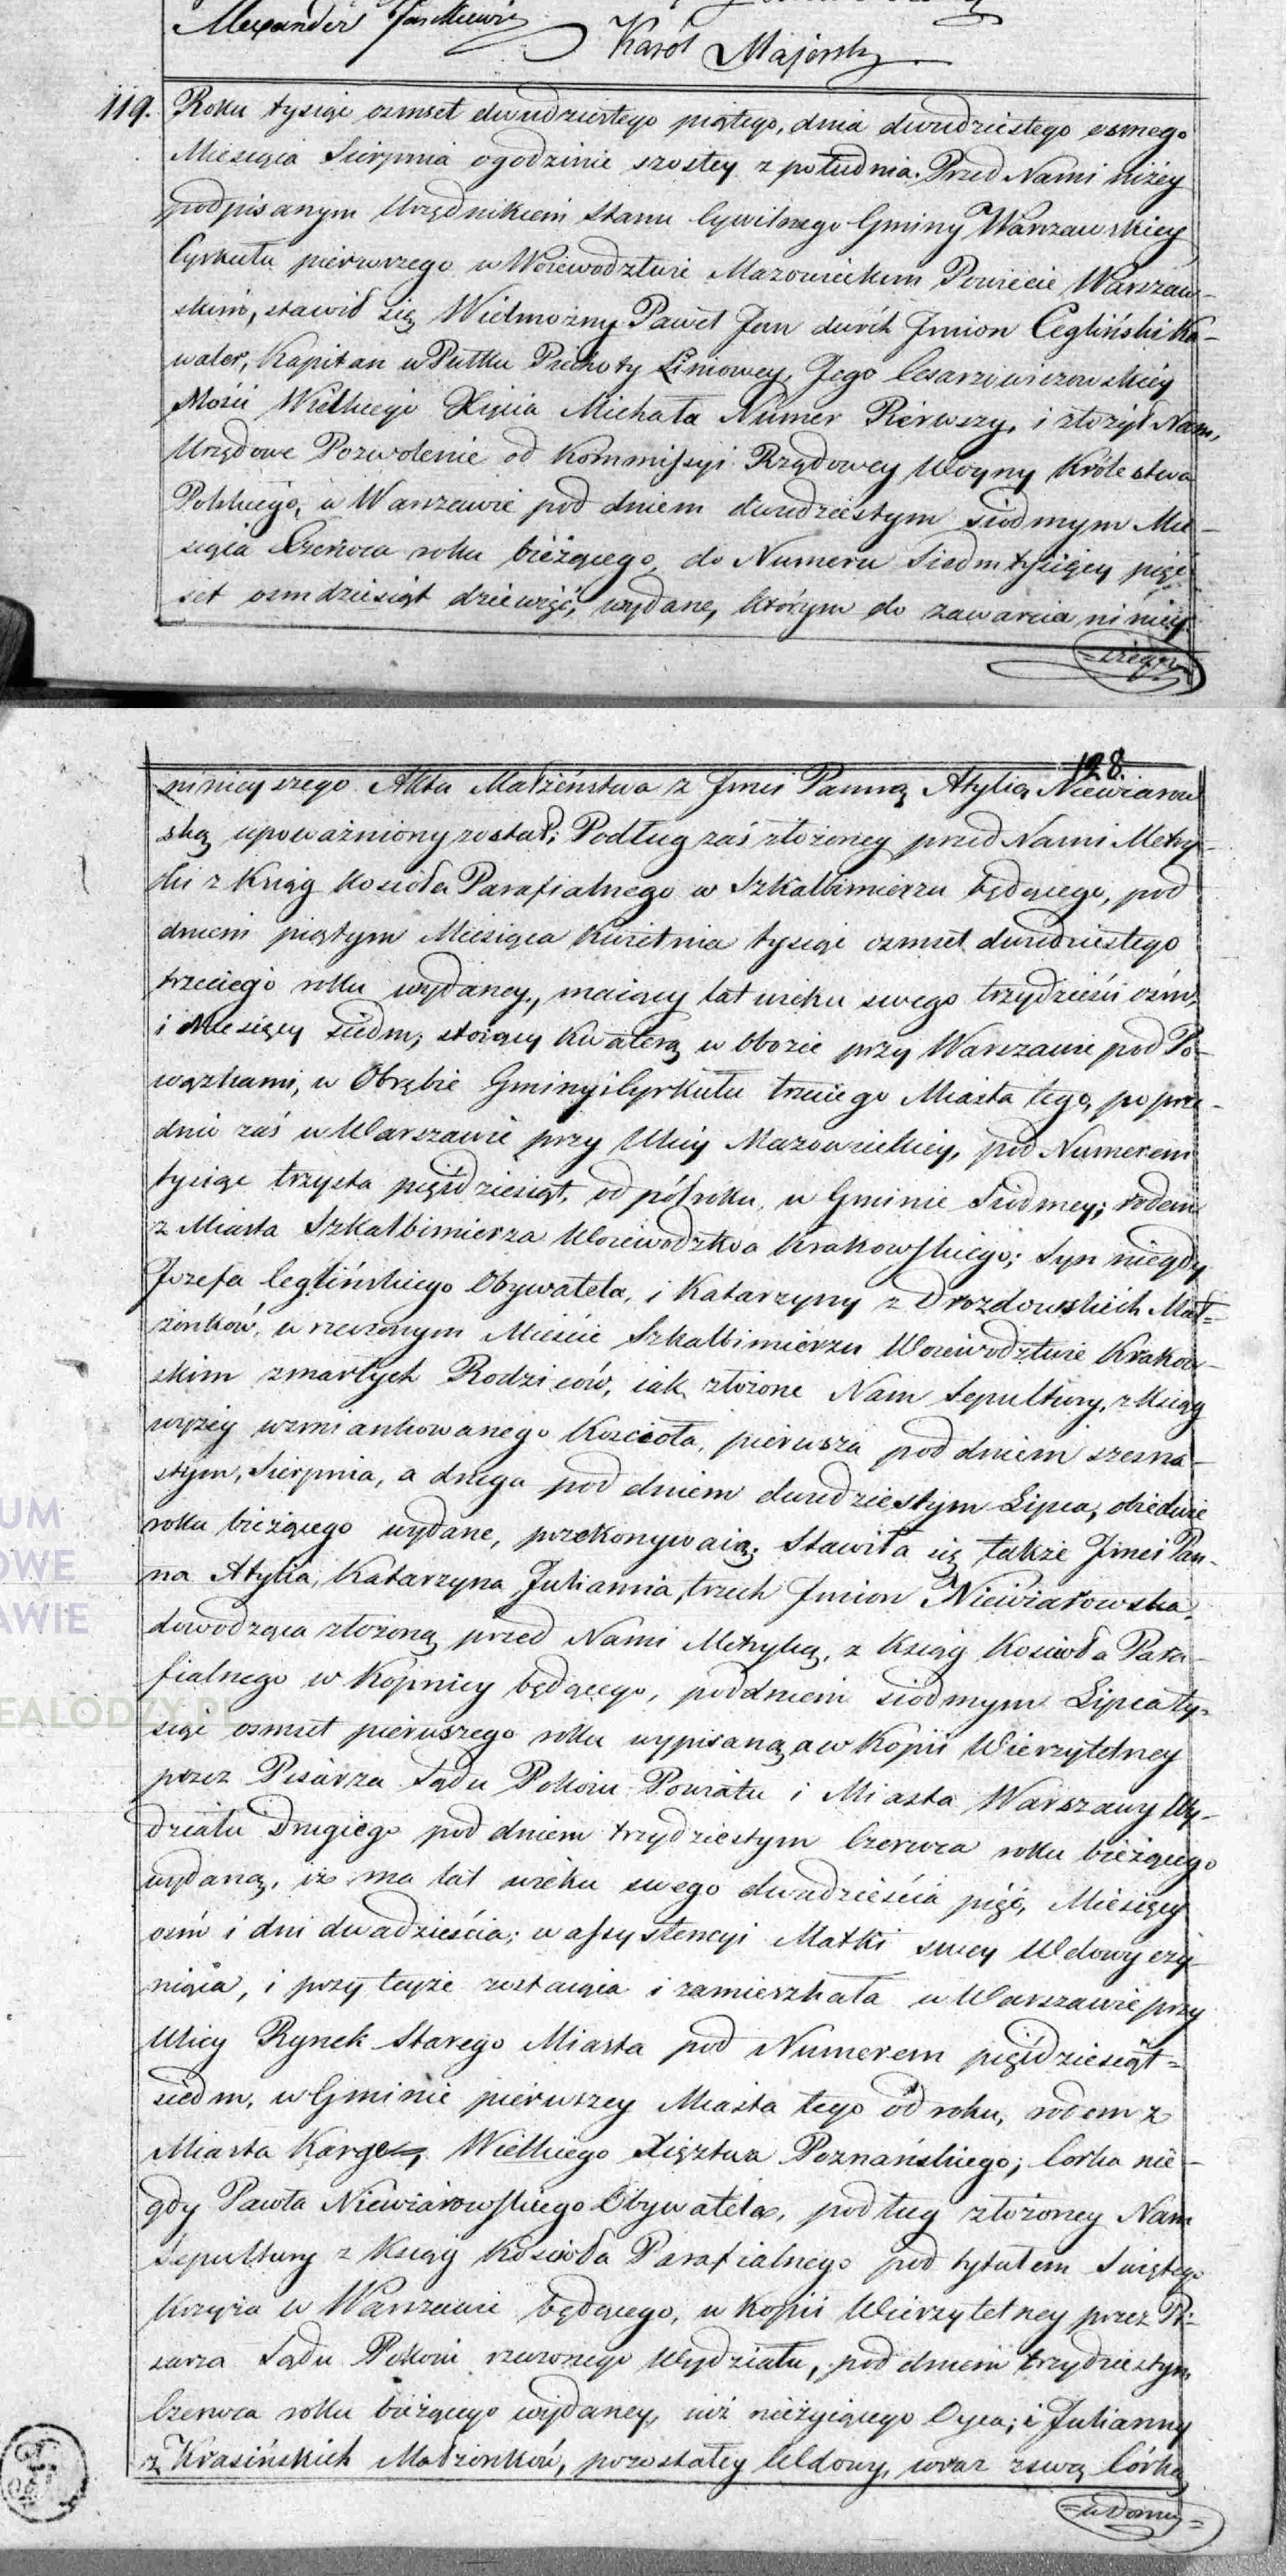 Alexander Jankiewicz
Karól Majerski
119. Roku tysiąc osmset dwudziestego piątego, dnia dwudziestego osmego
Miesiąca Sierpnia o godzinie szostey z południa. Przed Nami niżey
podpisanym Urzędnikiem Stanu Cywilnego Gminy Warszawskiey
Cyrkułu pierwszego w Woiewodztwie Mazowieckim Powiecie Warszaw-
skim, stawił się Wielmożny Paweł Jan dwóch Jmion Cegliński Ka-
waler, Kapitan w Pułku Piechoty Liniowey, Jego Cesarzewiczowskiey
Mości Wielkiego Xięcia Michała Numer Pierwszy, i złożył Nam,
Urzędowe Pozwolenie od Kommissyi Rządowey Woyny Królestwa
Polskiego, w Warszawie pod dniem dwudziestym siodmym Mie-
siąca Czerwca roku bieżącego, do Numeru Siedmtysięcy pięć
set osmdziesiąt dziewięć, wydane, którym do zawarcia niniey
=szego=
128.
ninieyszego Aktu Małżeństwa z Jmci Panną Atylią Niewiarow
ską upoważniony został; Podług zaś złożoney przed Nami Metry-
ki z Ksiąg Kościoła Parafialnego w Szkalbimierzu będącego, pod
dniem piątym Miesiąca Kwietnia tysiąc osmset dwudziestego
trzeciego roku wydaney, maiący lat wieku swego trzydzieści osm,
i Miesięcy siedm, stoiący Kwaterą w Obozie przy Warszawie pod Po-
wązkami, w Obrębie Gminy i Cyrkułu trzeciego Miasta tego, poprze-
dnio zaś w Warszawie przy Ulicy Mazowieckiey, pod Numerem
tysiąc trzysta pięćdziesiąt, od półroku, w Gminie Siodmey; rodem
z Miasta Szkalbimierza Woiewodztwa Krakowskiego; Syn niegdy
Jozefa Ceglińskiego Obywatela, i Katarzyny z Drozdowskich Mał=
żonków, w rzeczonym Mieście Szkalbimierzu Woiewodztwie Krakow-
skim zmarłych Rodziców, iak złożone Nam Sepultury, z Ksiąg
wyżey wzmiankowanego Kościoła, pierwsza pod dniem szesna-
stym, Sierpnia, a druga pod dniem dwudziestym Lipca, obiedwie
roku bieżącego wydane, przekonywaią; Stawiła się także Jmci Pan-
na Atylia, Katarzyna, Julianna, trzech Jmion Niewiarowska,
dowodząca złożoną przed Nami Metryką, z Ksiąg Kościoła Para-
fialnego w Kopnicy będącego, pod dniem siodmym Lipca ty-
siąc osmset pierwszego roku wypisaną, a w Kopii Wierzytelney
przez Pisarza Sądu Pokoiu Powiatu i Miasta Warszawy Wy-
działu Drugiego pod dniem trzydziestym Czerwca roku bieżącego
wydaną, iż ma lat wieku swego dwadzieścia pięć, Miesięcy
osm i dni dwadzieścia; w assystencyi Matki swey Wdowy czy
niąca, i przy teyże zostaiąca i zamieszkała w Warszawie przy
Ulicy Rynek Starego Miasta pod Numerem pięćdziesiąt=
siedm, w Gminie pierwszey Miasta tego od roku, rodem z
Miasta Karge, Wielkiego Xięztwa Poznańskiego; Corka nie-
gdy Pawła Niewiarowskiego Obywatela, podług złożoney Nam
Sepultury z Ksiąg Kościoła Parafialnego pod tytułem Swiętego
Krzyża w Warszawie będącego, w Kopii Wierzytelney przez Pi-
sarza Sądu Pokoiu rzeczonego Wydziału, pod dniem trzydziestym
Czerwca roku bieżącego wydaney, iuż nieżyiącego Oyca; i Julianny
z Krasińskich Małżonków, pozostałey Wdowy, wraz z swą Córką,
=w Domu=